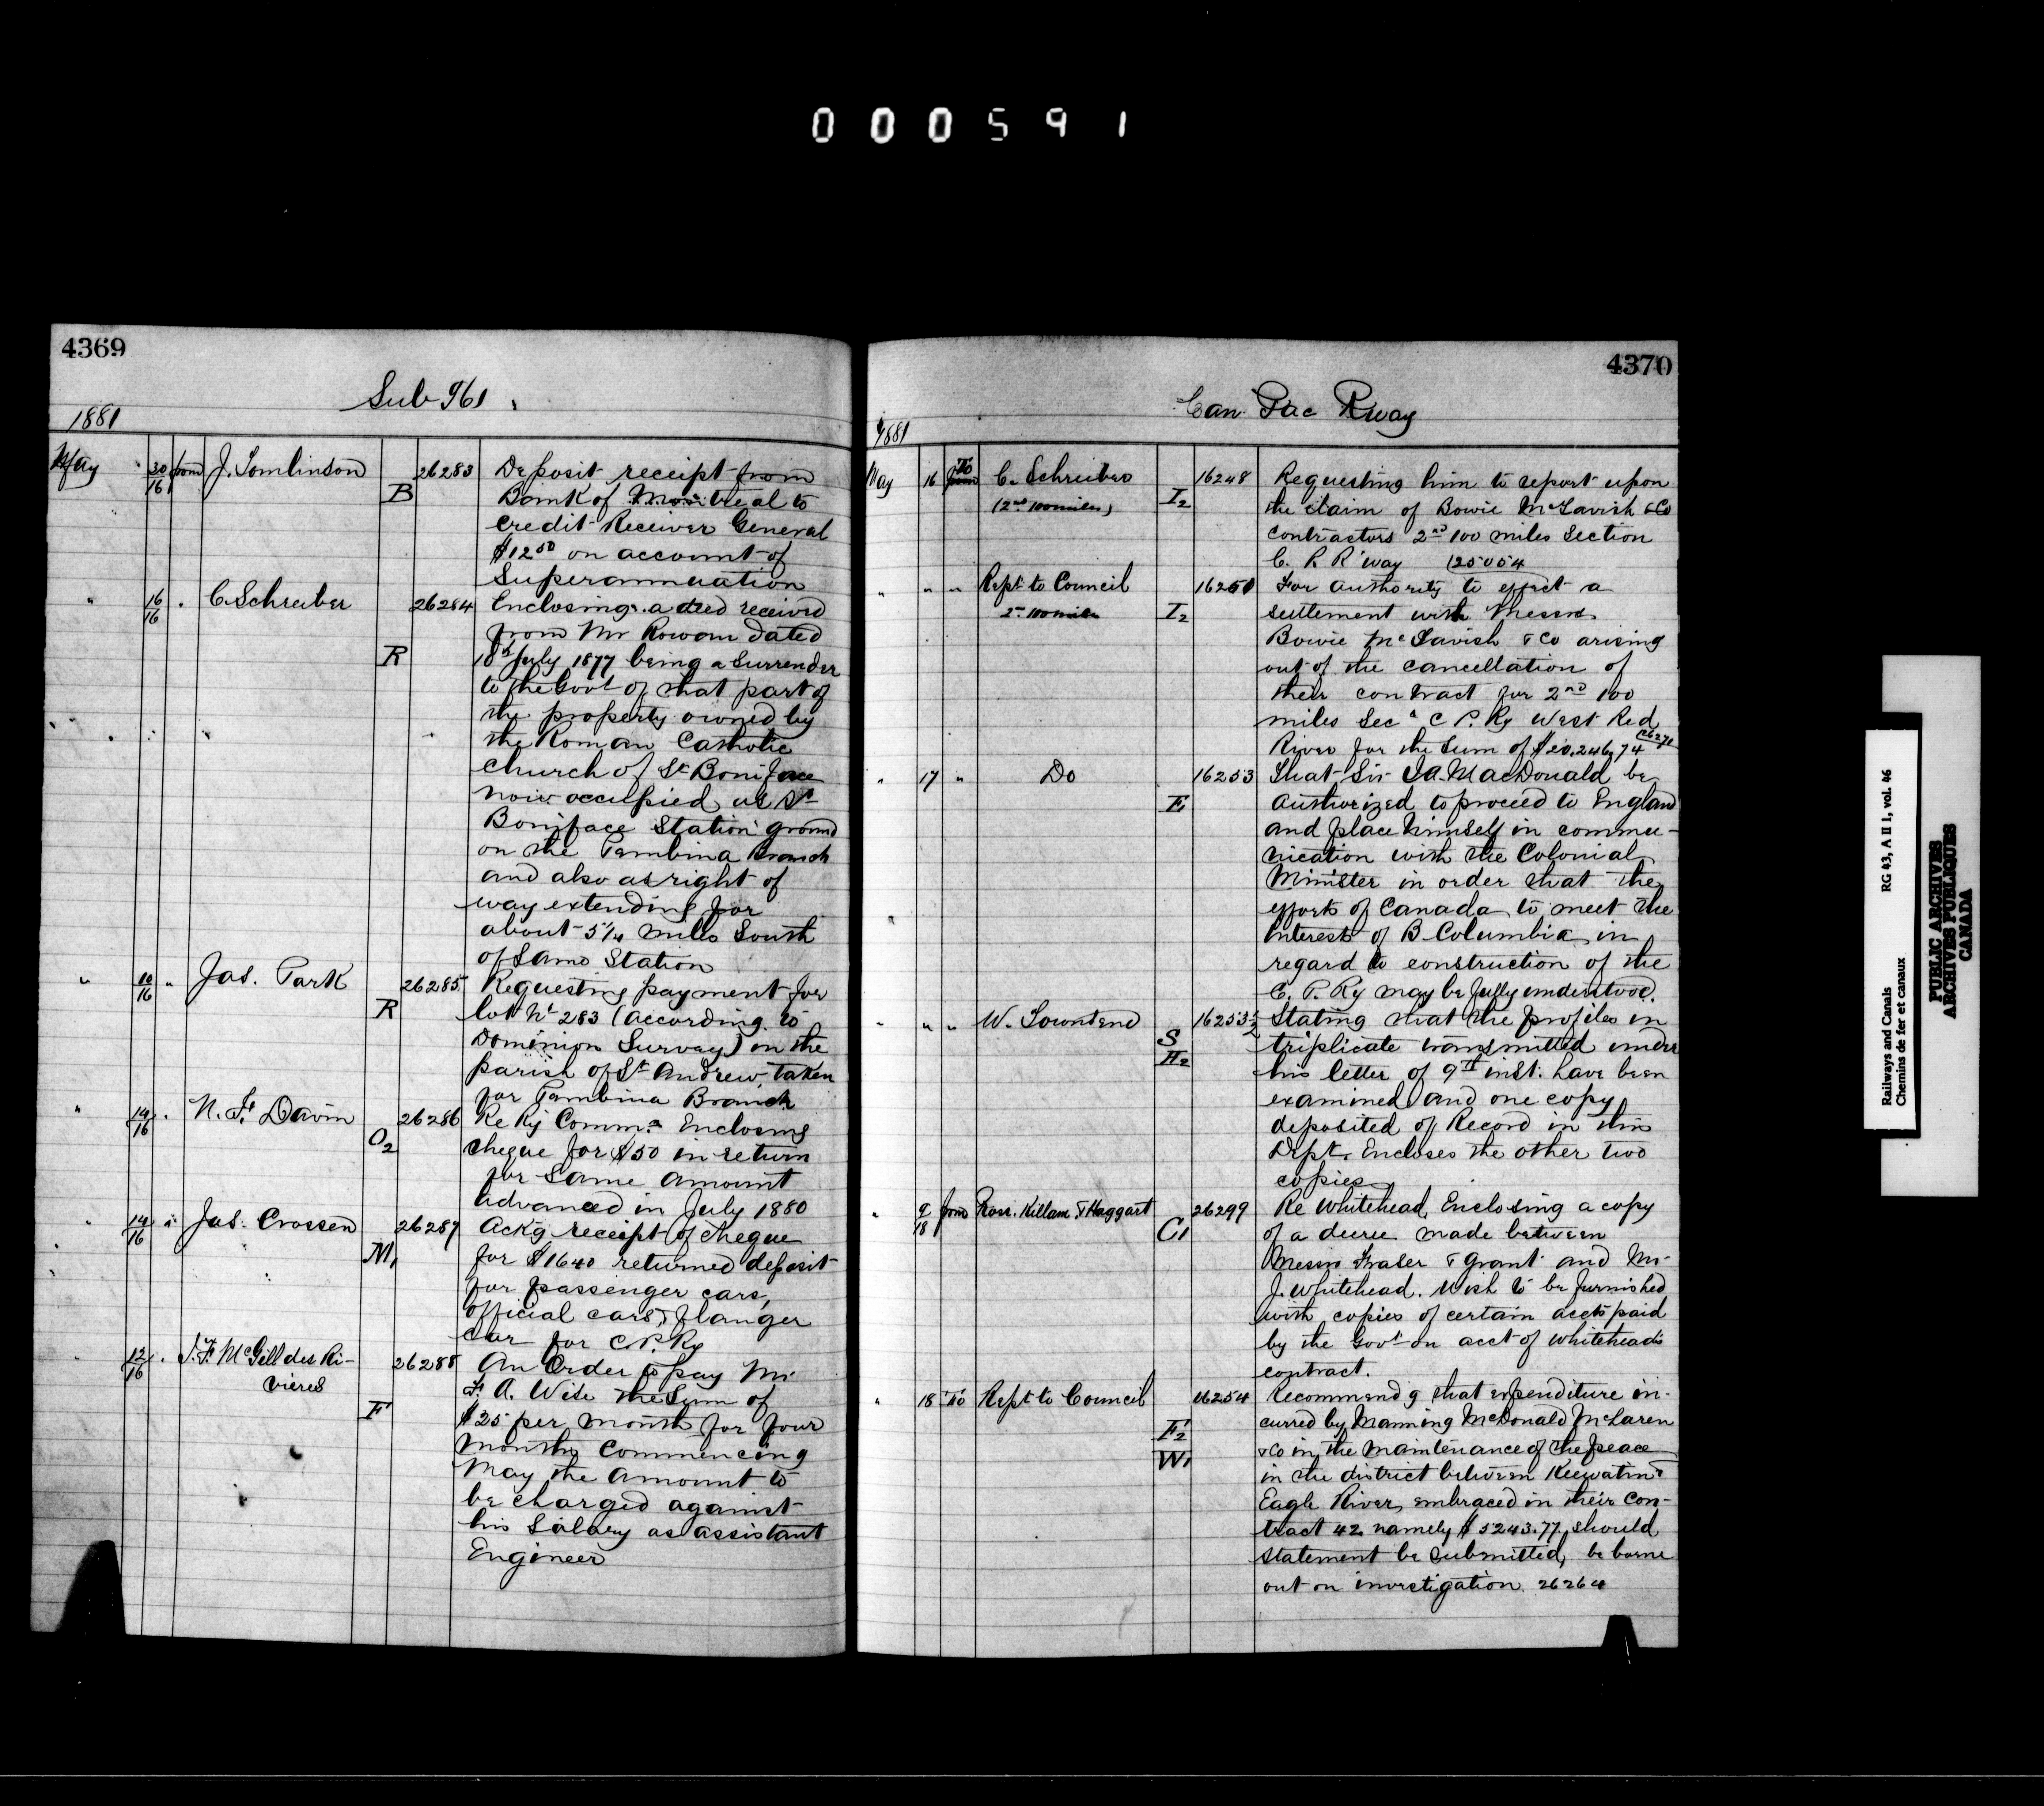 000591
4369
Sub 961
1881
May 30/16 from J. Tomlinson B 26283 Deposit receipt from
Bank of Montreal to
credit Receiver General
$12 50 on account of
Superannuation
" 16/16 " C. Schreiber 26284 Enclosing a deed received
from Mr Rowan dated
R 18th July 1877 being a Surrender
to the Govt of that part of
the property owned by
the Roman Catholic
Church of St Boniface
now occupied as St
Boniface Station ground
on the Pembina Branch
and also as right of
way extending for
about 5 1/4 miles South
of Same Station
" 10/16 " Jas. Park 26285 Requesting payment for
R lot No 283 (according to
Dominion Survey) in the
parish of St Andrew, taken
for Pembina Branch
" 14/16 " N. F. Davin 26286 Re Ry Commn Enclosing
O2 cheque for $50 in return
for Same amount
advanced in July 1880
" 14/16 " Jas. Crossen 26287 Ack'g receipt of cheque
M1 for $1640 returned deposit
for passenger cars,
official cars, & flanger
car for C.P. Ry
" 12/16 " McGill des Ri-
vieres 26288 An Order to pay Mr
F. A. Wise the Sum of
F $25 per month for four
months commencing
May the amount to
be charged against
his Salary as assistant
Engineer
4370
Can Pac Rway
1881
May 16 To C. Schreiber 16248 Requesting him to report upon
(2nd 100 miles) I2 the claim of Bowie McTavish & Co
contractors 2nd 100 miles Section
C. P. R'way (25054
" " " Rept to Council 16251 For authority to effect a
2nd 100 miles I2 settlement with Messrs
Bowie McTavish & Co arising
out of the cancellation of
their contract for 2nd 100
miles Secn C P. Ry West Red
River for the Sum of
" 17 " Do 16253 That Sir J A. MacDonald be
authorized to proceed to England
and place himself in commu-
nication with the Colonial
Minister in order that the
efforts of Canada to meet the
interests of B Columbia in
regard to construction of the
C. P. Ry may be fully understood.
" " " W. Townsend 16253 1/2 Stating that the profiles in
S H2 triplicate transmitted under
his letter of 9th inst. have been
examined and one copy
deposited of Record in this
Dept. Encloses the other two
copies
" 9/18 from Ross. Killam & Haggart 26299 Re Whitehead, Enclosing a copy
C1 of a decree made between
Messrs Fraser & Grant and Mr
J. Whitehead. Wish to be furnished
with copies of certain accts paid
by the Govt on acct of Whitehead's
contract.
" 18 To Rept to Council 16254 Recommend'g that expenditure in-
F2 curred by Manning McDonald McLaren
W1 & Co in the maintenance of the peace
in the district between Keewatin &
Eagle River, embraced in their Con-
tract 42 namely $5243.77, should
statement be submitted, be borne
out on investigation. 26264
Railways and Canals RG 43, A II 1, vol. 46
Chemins de fer et canaux
PUBLIC ARCHIVES
ARCHIVES PUBLIQUES
CANADA